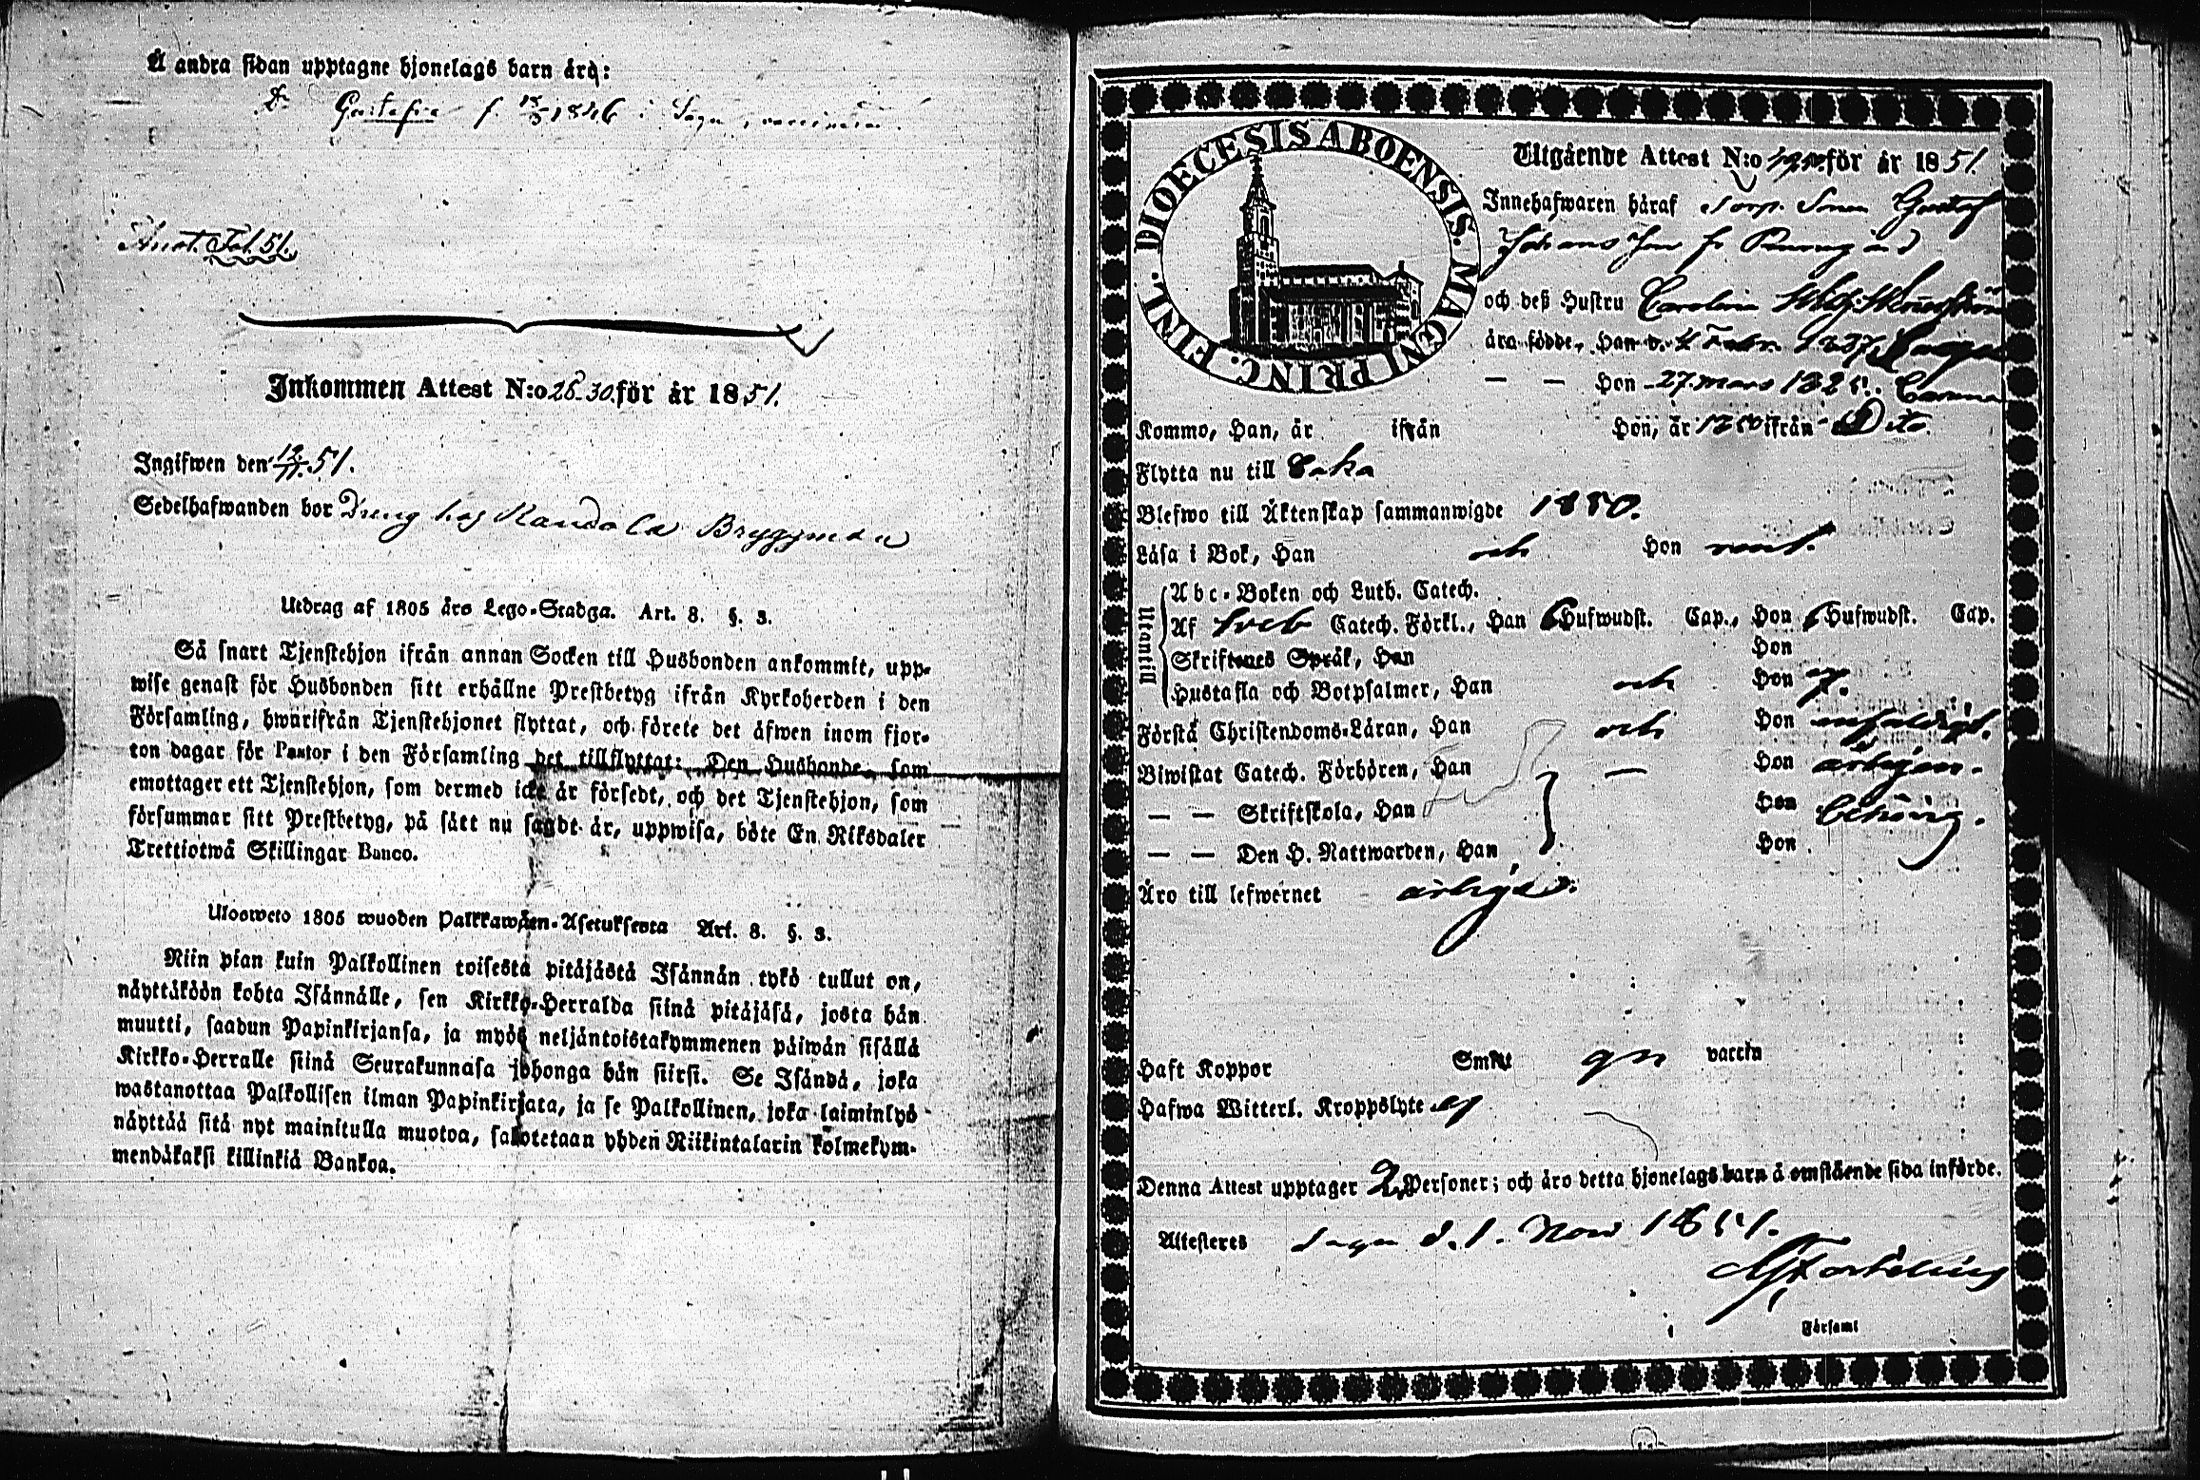 Å andra sidan upptagne hjonelags barn äro:
Dr Gustafva f. 1846 i Sagu, vaccinerad.
Anot. Fol. 51.
Inkommen Attest N:o 26-30 för år 1851.
Ingifwen den 12/11 51.
Sedelhafwanden bor Dreng hos Bryggman
Utdrag af 1805 års Lego-Stadga. Art. 8. §. 3.
Så snart Tjenstehjon ifrån annan Socken till Husbonden ankommit, upp-
wise genast för Husbonden sitt erhållne Prestbetyg ifrån Kyrkoherden i den
Församling, hwarifrån Tjenstehjonet flyttat, och förete det äfwen inom fjor-
ton dagar för Pastor i den Församling det tillflyttat: Den Husbonde, som
emottager ett Tjenstehjon, som dermed icke är försedt, och det Tjenstehjon, som
försummar sitt Prestbetyg, på sätt nu sagdt är, uppwisa, böte En Riksdaler
Trettiotwå Skillingar Banco.
Ulosweto 1805 wuoden Palkkawäen-Asetuksesta Art. 8. §. 3.
Niin pian kuin Palkollinen toisesta pitäjästä Isännän tykö tullut on,
näyttäköön kohta Isännälle, sen Kirkko-Herralda siinä pitäjäsä, josta hän
muutti, saadun Papinkirjansa, ja myös neljäntoistakymmenen päiwän sisällä
Kirkko-Herralle siinä Seurakunnasa johonga hän siirsi. Se Isändä, joka
wastanottaa Palkollisen ilman Papinkirjata, ja se Palkollinen, joka laiminlyö
näyttää sitä nyt mainitulla muotoa, sakotetaan yhden Riikintalarin kolmekym-
mendäkaksi killinkiä Bankoa.
DIOECESIS ABOENSIS. MAGNI PRINC. FINL.
Utgående Attest N:o för år 1851.
Innehafwaren häraf Torp. Sonen Gustaf
Johansson fr. Runng
och deß Hustru Carolina
äro födde, Han d. 2 Febr. 1827
— — Hon 27 mars 1825.
Kommo, Han, år ifrån Hon, år 1850 ifrån Dito.
Flytta nu till
Blefwo till Äktenskap sammanwigde 1850.
Läsa i Bok, Han och Hon rent.
Utantill
Abc-Boken och Luth. Catech.
Af Sveb Catech. Förkl., Han 6 Hufwudst. Cap., Hon 6 Hufwudst. Cap.
Skriftenes Språk, Han Hon
Hustafla och Botpsalmer, Han och Hon 7.
Förstå Christendoms-Läran, Han och Hon enfaldigt.
Biwistat Catech. Förhören, Han — Hon årligen.
— — Skriftskola, Han Hon behörig.
— — Den H. Nattwarden, Han Hon
Äro till lefwernet ärlige
Haft Koppor Smitt gn vaccin
Hafwa Witterl. Kroppslyte ej
Denna Attest upptager 2 Personer; och äro detta hjonelags barn å omstående sida införde.
Attesteras Sagu d. 1. Nov 1851.
Församl